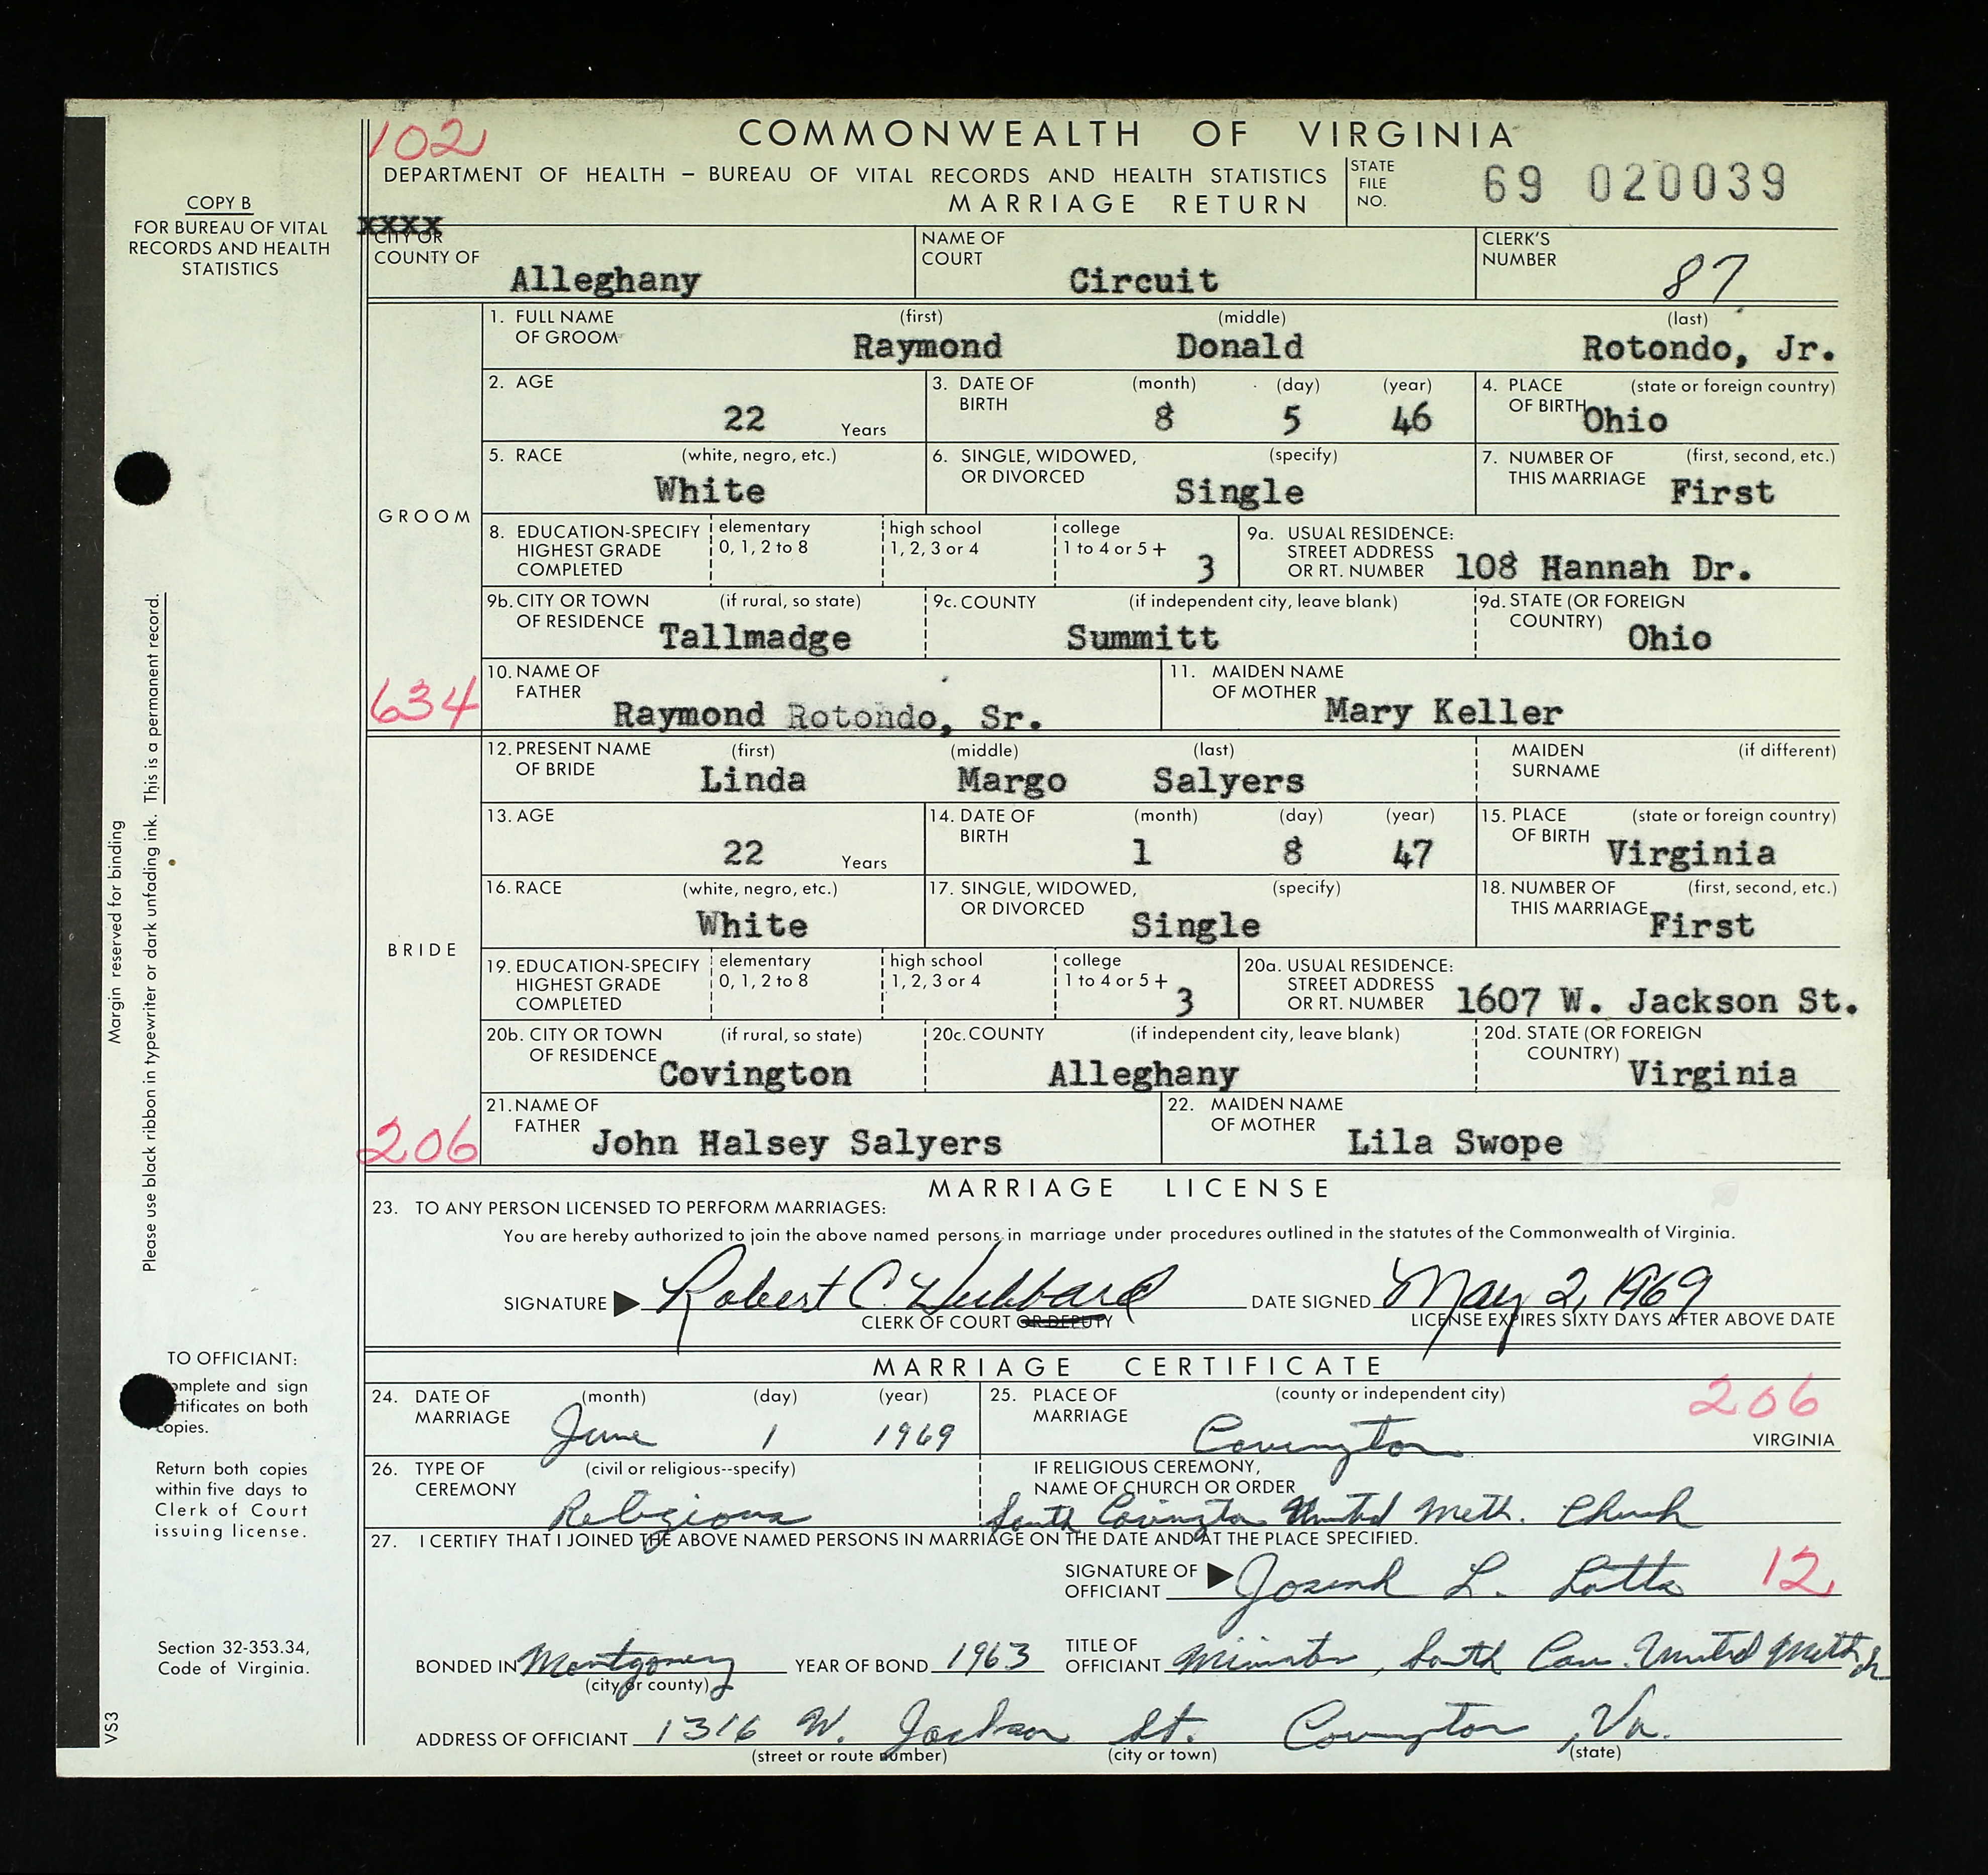 102
COMMONWEALTH OF VIRGINIA
DEPARTMENT OF HEALTH – BUREAU OF VITAL RECORDS AND HEALTH STATISTICS
MARRIAGE RETURN
STATE FILE NO. 69 020039
COPY B
FOR BUREAU OF VITAL
RECORDS AND HEALTH
STATISTICS
XXXX
CITY OR
COUNTY OF Alleghany
NAME OF COURT Circuit
CLERK'S NUMBER 87
GROOM
1. FULL NAME OF GROOM (first) Raymond (middle) Donald (last) Rotondo, Jr.
2. AGE 22 Years
3. DATE OF BIRTH (month) 8 (day) 5 (year) 46
4. PLACE OF BIRTH (state or foreign country) Ohio
5. RACE (white, negro, etc.) White
6. SINGLE, WIDOWED, OR DIVORCED (specify) Single
7. NUMBER OF THIS MARRIAGE (first, second, etc.) First
8. EDUCATION-SPECIFY HIGHEST GRADE COMPLETED elementary 0, 1, 2 to 8 high school 1, 2, 3 or 4 college 1 to 4 or 5 + 3
9a. USUAL RESIDENCE: STREET ADDRESS OR RT. NUMBER 108 Hannah Dr.
9b. CITY OR TOWN OF RESIDENCE (if rural, so state) Tallmadge
9c. COUNTY (if independent city, leave blank) Summitt
9d. STATE (OR FOREIGN COUNTRY) Ohio
634
10. NAME OF FATHER Raymond Rotondo, Sr.
11. MAIDEN NAME OF MOTHER Mary Keller
BRIDE
12. PRESENT NAME OF BRIDE (first) Linda (middle) Margo (last) Salyers
MAIDEN SURNAME (if different)
13. AGE 22 Years
14. DATE OF BIRTH (month) 1 (day) 8 (year) 47
15. PLACE OF BIRTH (state or foreign country) Virginia
16. RACE (white, negro, etc.) White
17. SINGLE, WIDOWED, OR DIVORCED (specify) Single
18. NUMBER OF THIS MARRIAGE (first, second, etc.) First
19. EDUCATION-SPECIFY HIGHEST GRADE COMPLETED elementary 0, 1, 2 to 8 high school 1, 2, 3 or 4 college 1 to 4 or 5 + 3
20a. USUAL RESIDENCE: STREET ADDRESS OR RT. NUMBER 1607 W. Jackson St.
20b. CITY OR TOWN OF RESIDENCE (if rural, so state) Covington
20c. COUNTY (if independent city, leave blank) Alleghany
20d. STATE (OR FOREIGN COUNTRY) Virginia
206
21. NAME OF FATHER John Halsey Salyers
22. MAIDEN NAME OF MOTHER Lila Swope
MARRIAGE LICENSE
23. TO ANY PERSON LICENSED TO PERFORM MARRIAGES:
You are hereby authorized to join the above named persons in marriage under procedures outlined in the statutes of the Commonwealth of Virginia.
SIGNATURE Robert C. Hubbard DATE SIGNED May 2, 1969
CLERK OF COURT OR DEPUTY LICENSE EXPIRES SIXTY DAYS AFTER ABOVE DATE
MARRIAGE CERTIFICATE
24. DATE OF MARRIAGE (month) June (day) 1 (year) 1969
25. PLACE OF MARRIAGE (county or independent city) Covington 206 VIRGINIA
26. TYPE OF CEREMONY (civil or religious--specify) Religious
IF RELIGIOUS CEREMONY, NAME OF CHURCH OR ORDER South Covington United Meth. Church
27. I CERTIFY THAT I JOINED THE ABOVE NAMED PERSONS IN MARRIAGE ON THE DATE AND AT THE PLACE SPECIFIED.
SIGNATURE OF OFFICIANT Joseph L. 12
BONDED IN Montgomery (city or county) YEAR OF BOND 1963 TITLE OF OFFICIANT Minister, South Cov. United Meth Ch
ADDRESS OF OFFICIANT 1316 W. Jackson St. Covington, Va.
(street or route number) (city or town) (state)
Margin reserved for binding
Please use black ribbon in typewriter or dark unfading ink. This is a permanent record.
TO OFFICIANT:
omplete and sign
rtificates on both
copies.
Return both copies
within five days to
Clerk of Court
issuing license.
Section 32-353.34,
Code of Virginia.
VS3